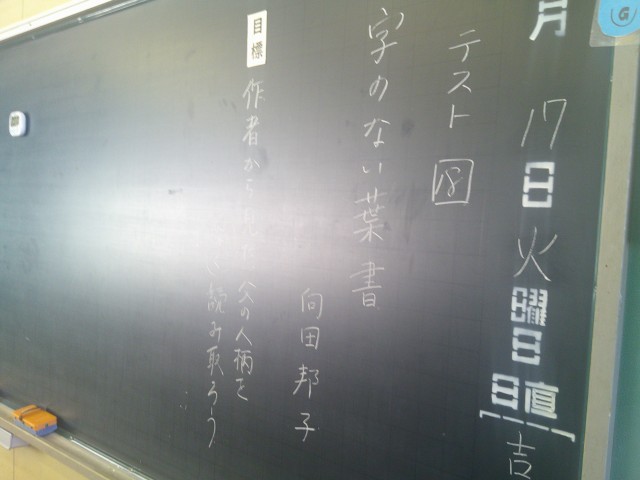 月17日火曜日
日直
吉
G
テスト 図
字のない葉書
向田邦子
目標
作者から見た父の人柄を
く読み取ろう